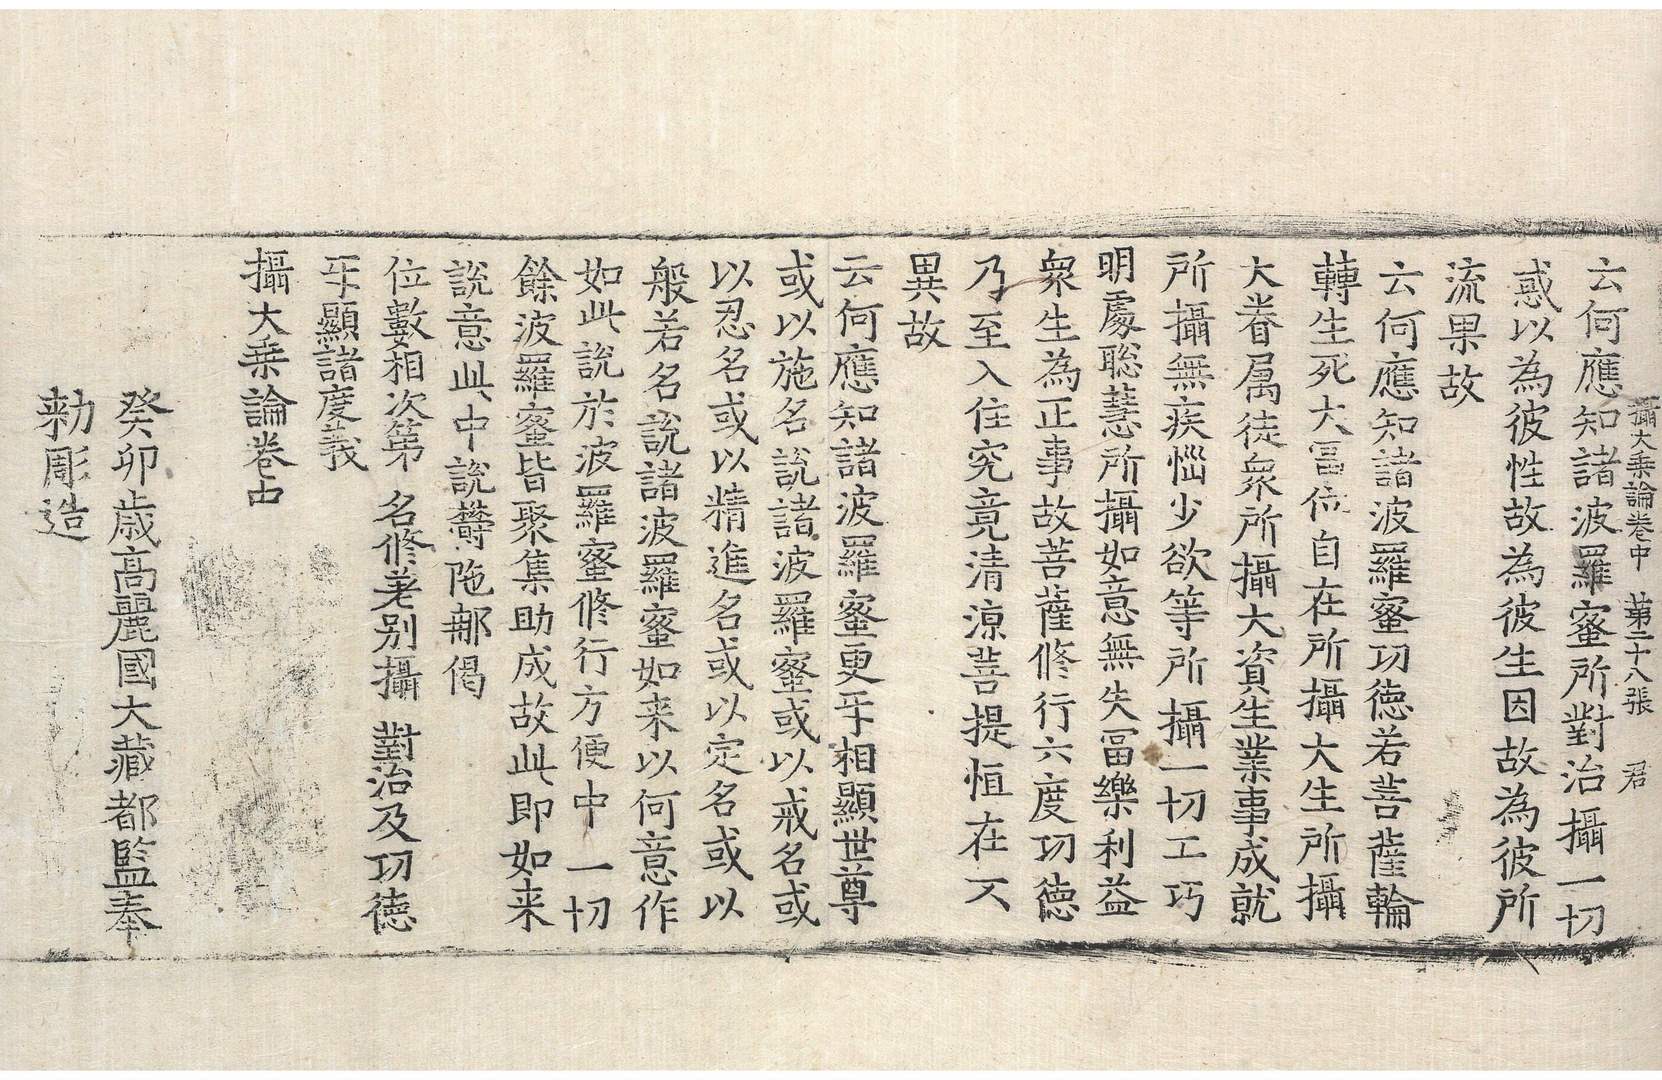 攝大乘論卷中 第二十八張 君
云何應知諸波羅蜜所對治攝一切
惑以為彼性故為彼生因故為彼所
流果故
云何應知諸波羅蜜功德若菩薩輪
轉生死大冨位自在所攝大生所攝
大眷屬徒衆所攝大資生業事成就
所攝無疾惱少欲等所攝一切工巧
明處聡慧所攝如意無失冨樂利益
衆生為正事故菩薩修行六度功德
乃至入住究竟清涼菩提恒在不
異故
云何應知諸波羅蜜更㸦相顯世尊
或以施名說諸波羅蜜或以戒名或
以忍名或以精進名或以定名或以
般若名說諸波羅蜜如来以何意作
如此說於波羅蜜修行方便中一切
餘波羅蜜皆聚集助成故此即如来
說意此中說欝陁那偈
位數相次第 名修差別攝 對治及功德
㸦顯諸度義
攝大乘論卷中
癸卯歳高麗國大藏都監奉
勑彫造